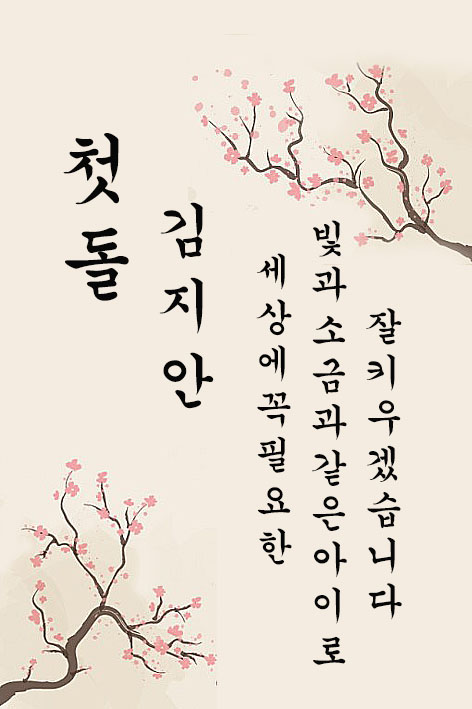 첫돌
김지안
세상에꼭필요한
빛과소금과같은아이로
잘키우겠습니다